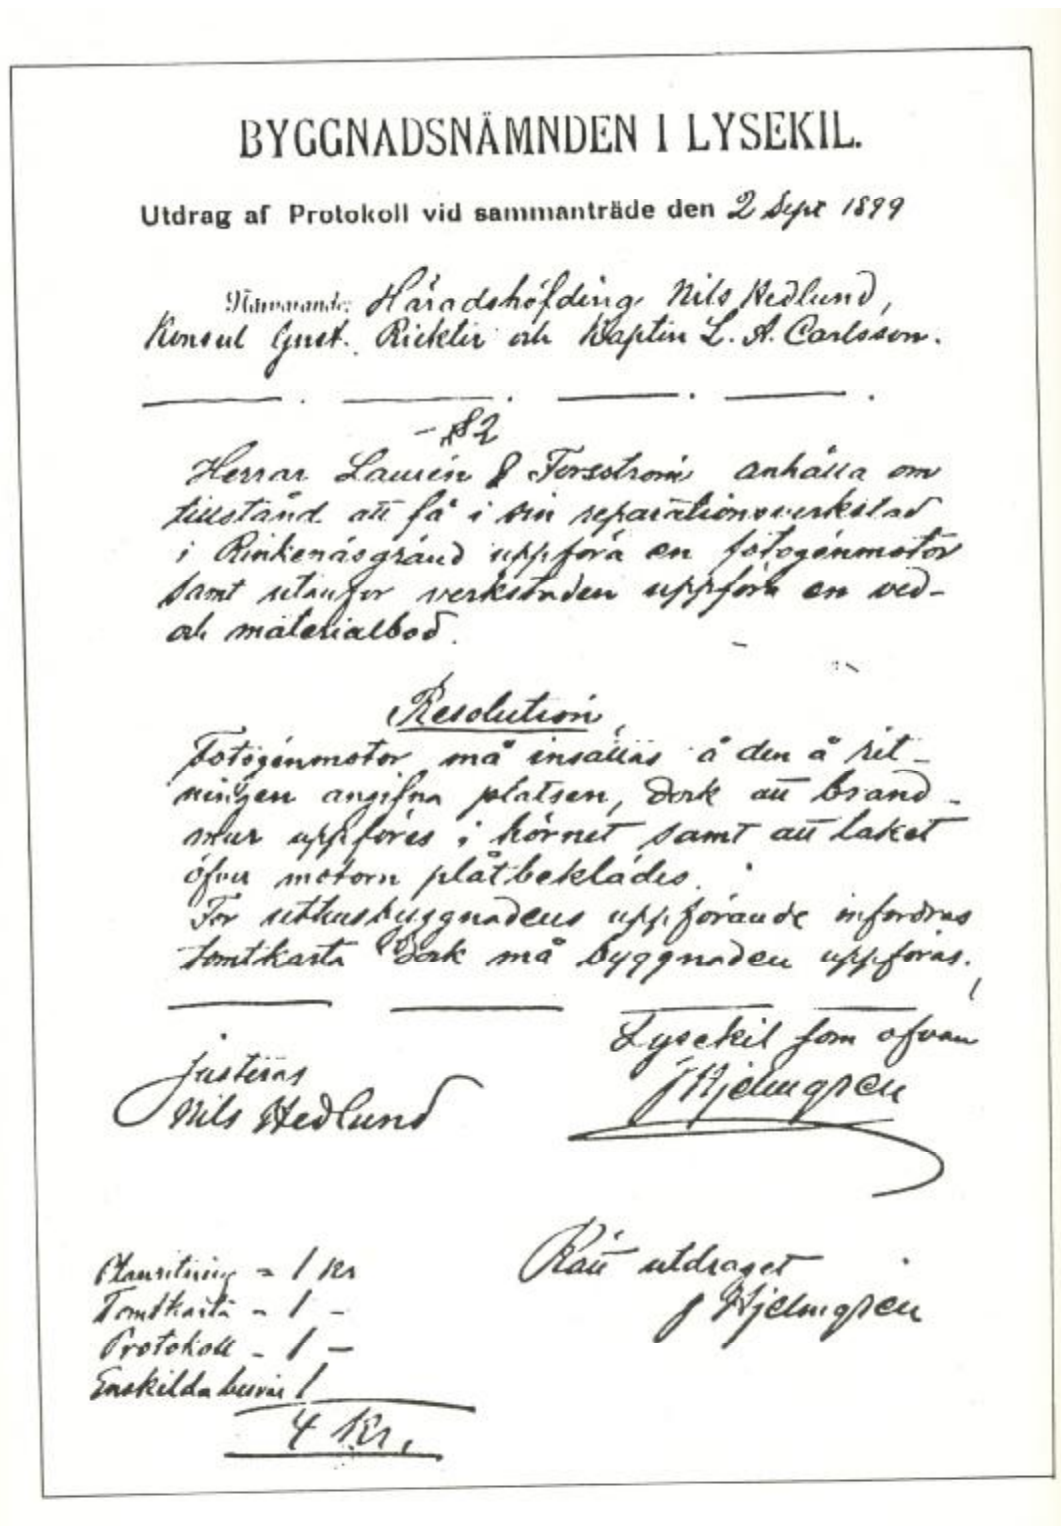 BYGGNADSNÄMNDEN I LYSEKIL.
Utdrag af Protokoll vid sammanträde den 2 Sept 1899
Närvarande: Häradshöfding Nils Hedlund,
Konsul Gust. Richter och Kaptin L. A. Carlsson.
§2
Herrar Laurin & Forsström anhålla om
tillstånd att få i sin reparationsverkstad
i Rinkenäsgränd uppföra en fotogénmotor
samt utanför verkstaden uppföra en ved-
och materialbod.
Resolution,
Fotogénmotor må insättas å den å rit-
ningen angifna platsen, dock att brand-
mur uppföres i hörnet samt att taket
öfver motorn plåtbeklädes.
För uthusbyggnadens uppförande infordras
tomtkarta dock må byggnaden uppföras.
Lysekil som ofvan
J Hjelmgren
Justeras
Nils Hedlund
Rätt utdraget
J Hjelmgren
Planritning - 1 Kr
Tomtkarta - 1 -
Protokoll - 1 -
Enskilda besvär 1
4 Kr.